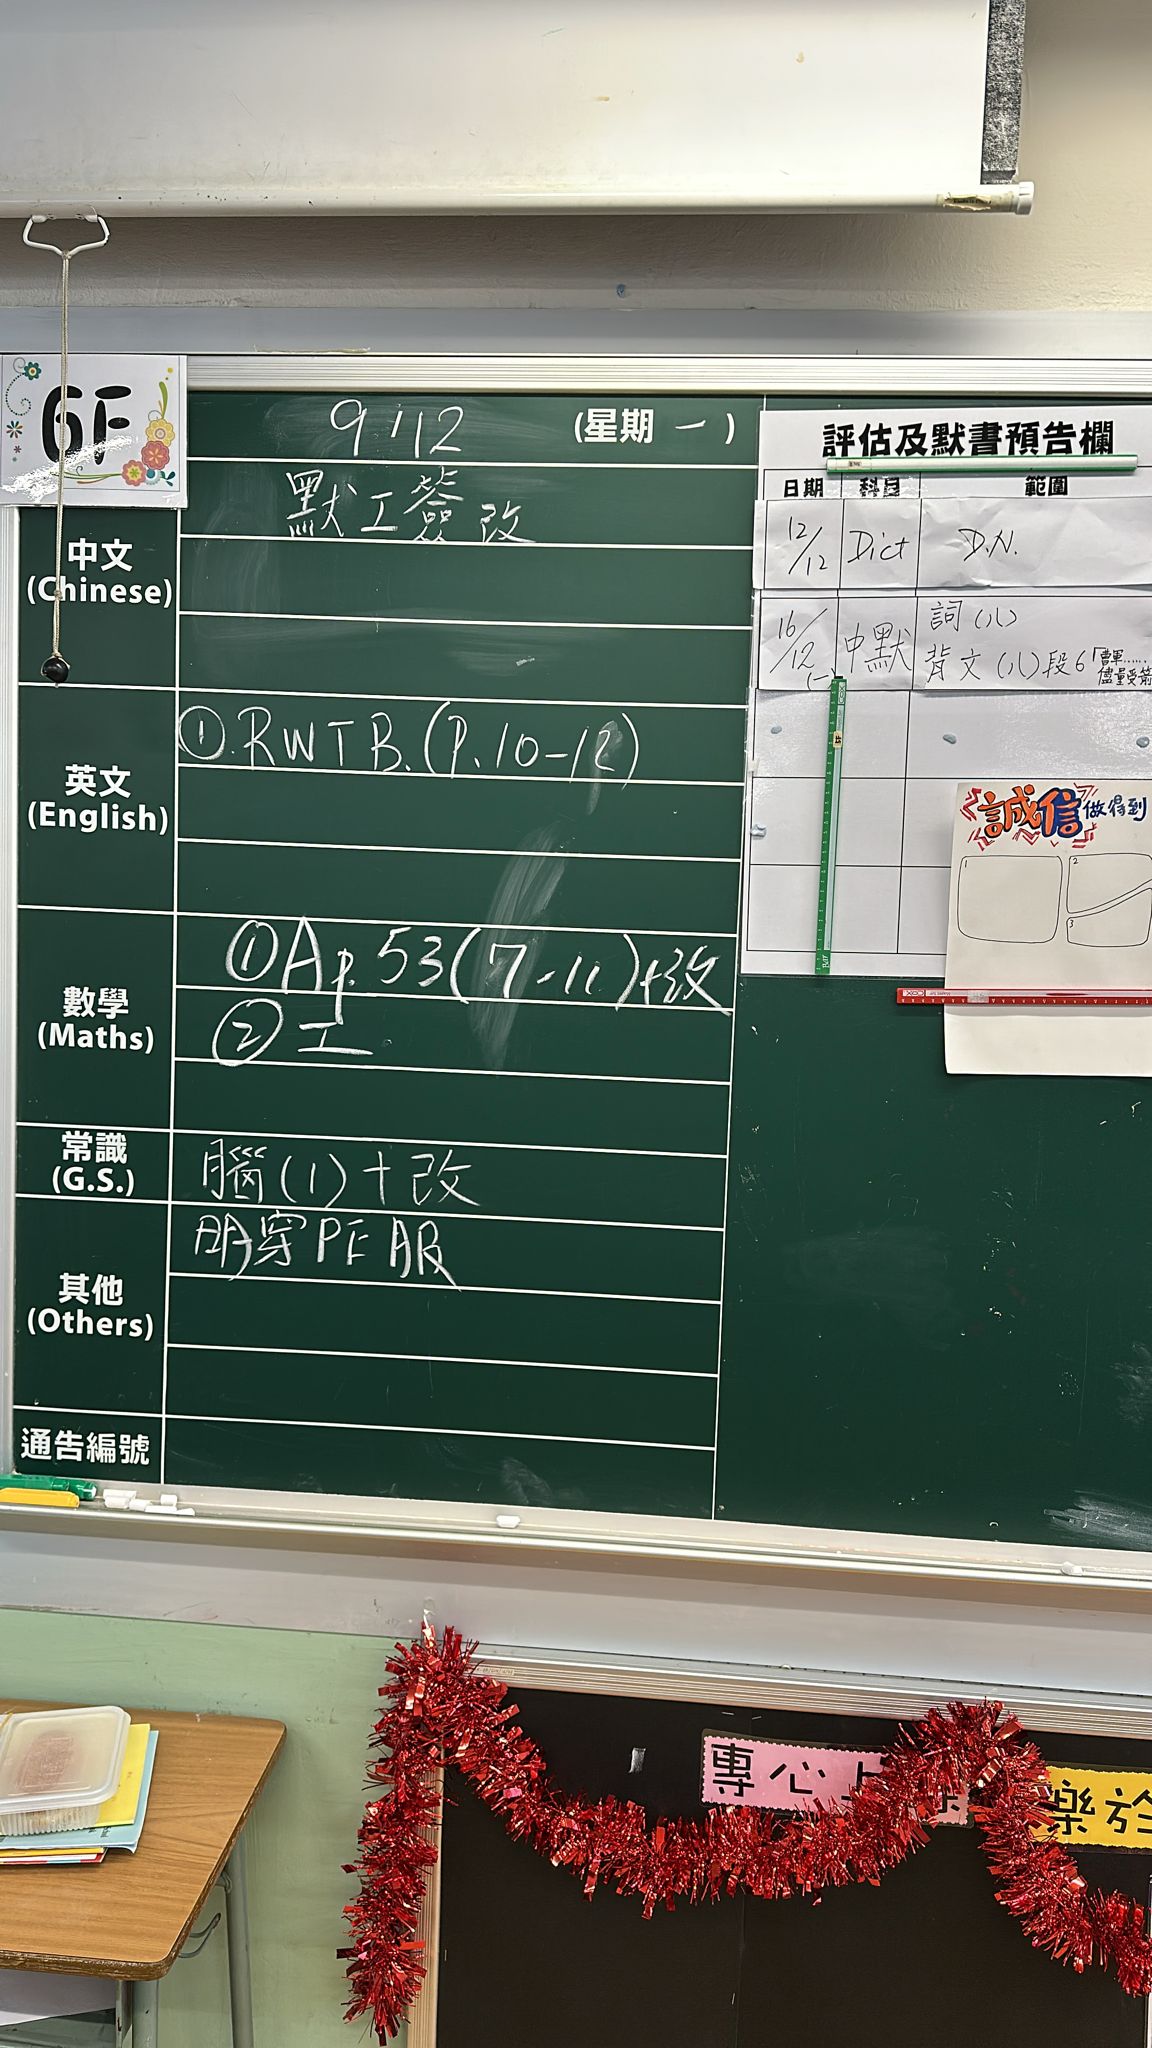 6F
9/12 (星期 一)
默工簽改
中文
(Chinese)
英文
(English)
①.RWTB.(P.10-12)
數學
(Maths)
①A p.53(7-11)+改
②工
常識
(G.S.)
腦(1)+改
其他
(Others)
明穿PE服
通告編號
評估及默書預告欄
日期 科目 範圍
12/12 Dict D.N.
16/12 (一) 中默 詞(八)
背文(八)段6「曹軍……
儘量受箭
誠信做得到
1
2
3
專心上
樂於